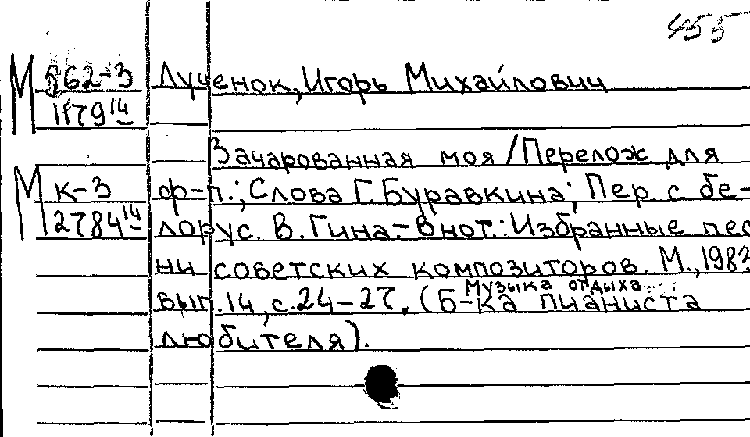 455
М 562-3 Лученок, Игорь Михайлович
1179 14
Зачарованная моя / Перелож для
М К-3 ф-п.; Слова Г. Буравкина; Пер. с бе-
2784 14 лорус. В. Гина.- В нот.: Избранные пес
ни советских композиторов. М., 1983
Музыка отдыха...
вып. 14, с. 24-27. (Б-ка пианиста
любителя).